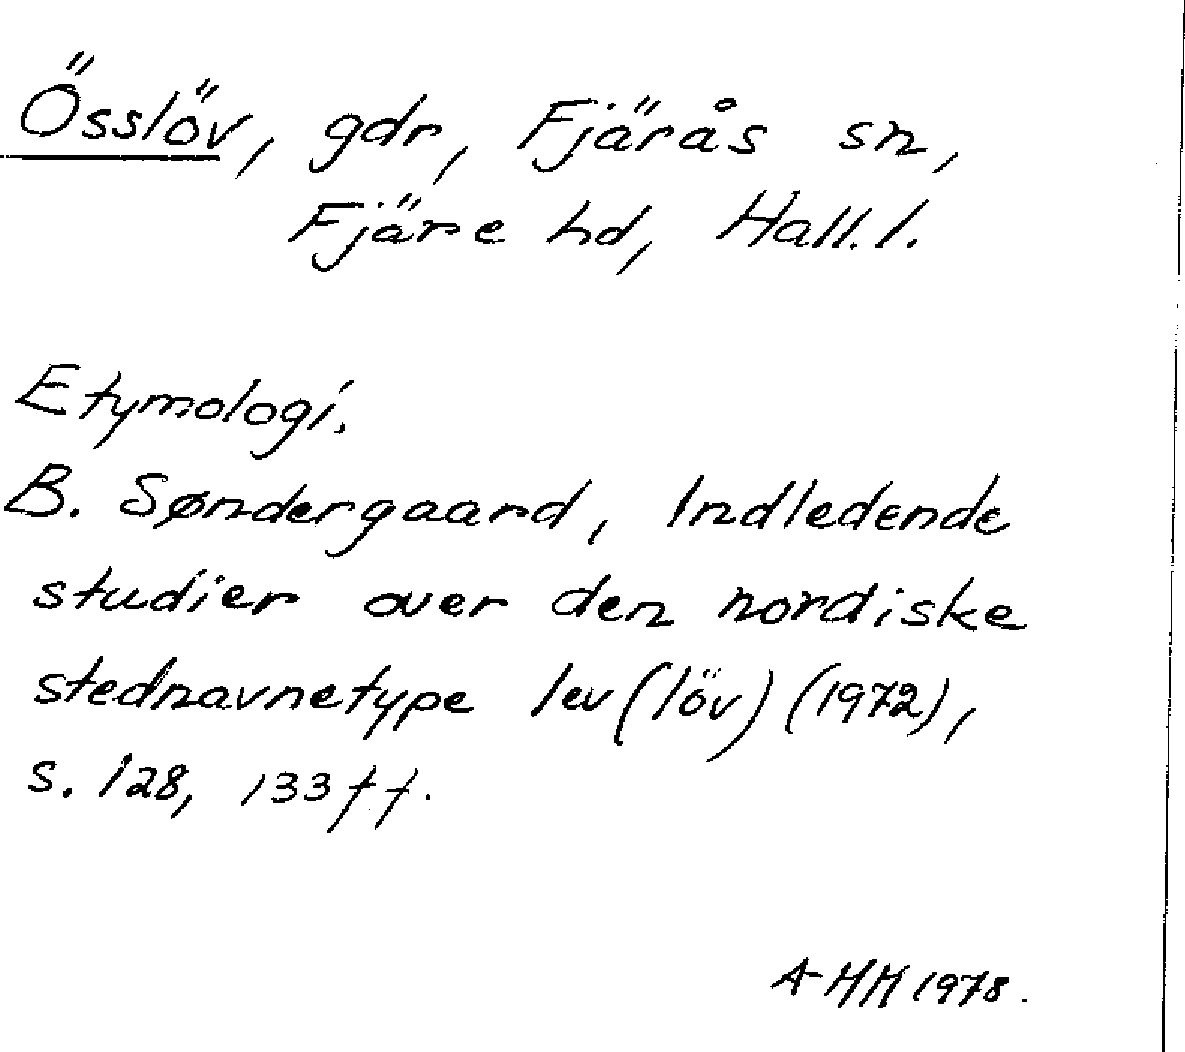 Össlöv, gdr, Fjärås sn,
Fjäre hd, Hall. l.
Etymologi.
B. Søndergaard, Indledende
studier over den nordiske
stednavnetype lev (löv) (1972),
s. 128, 133 ff.
AHM 1978.